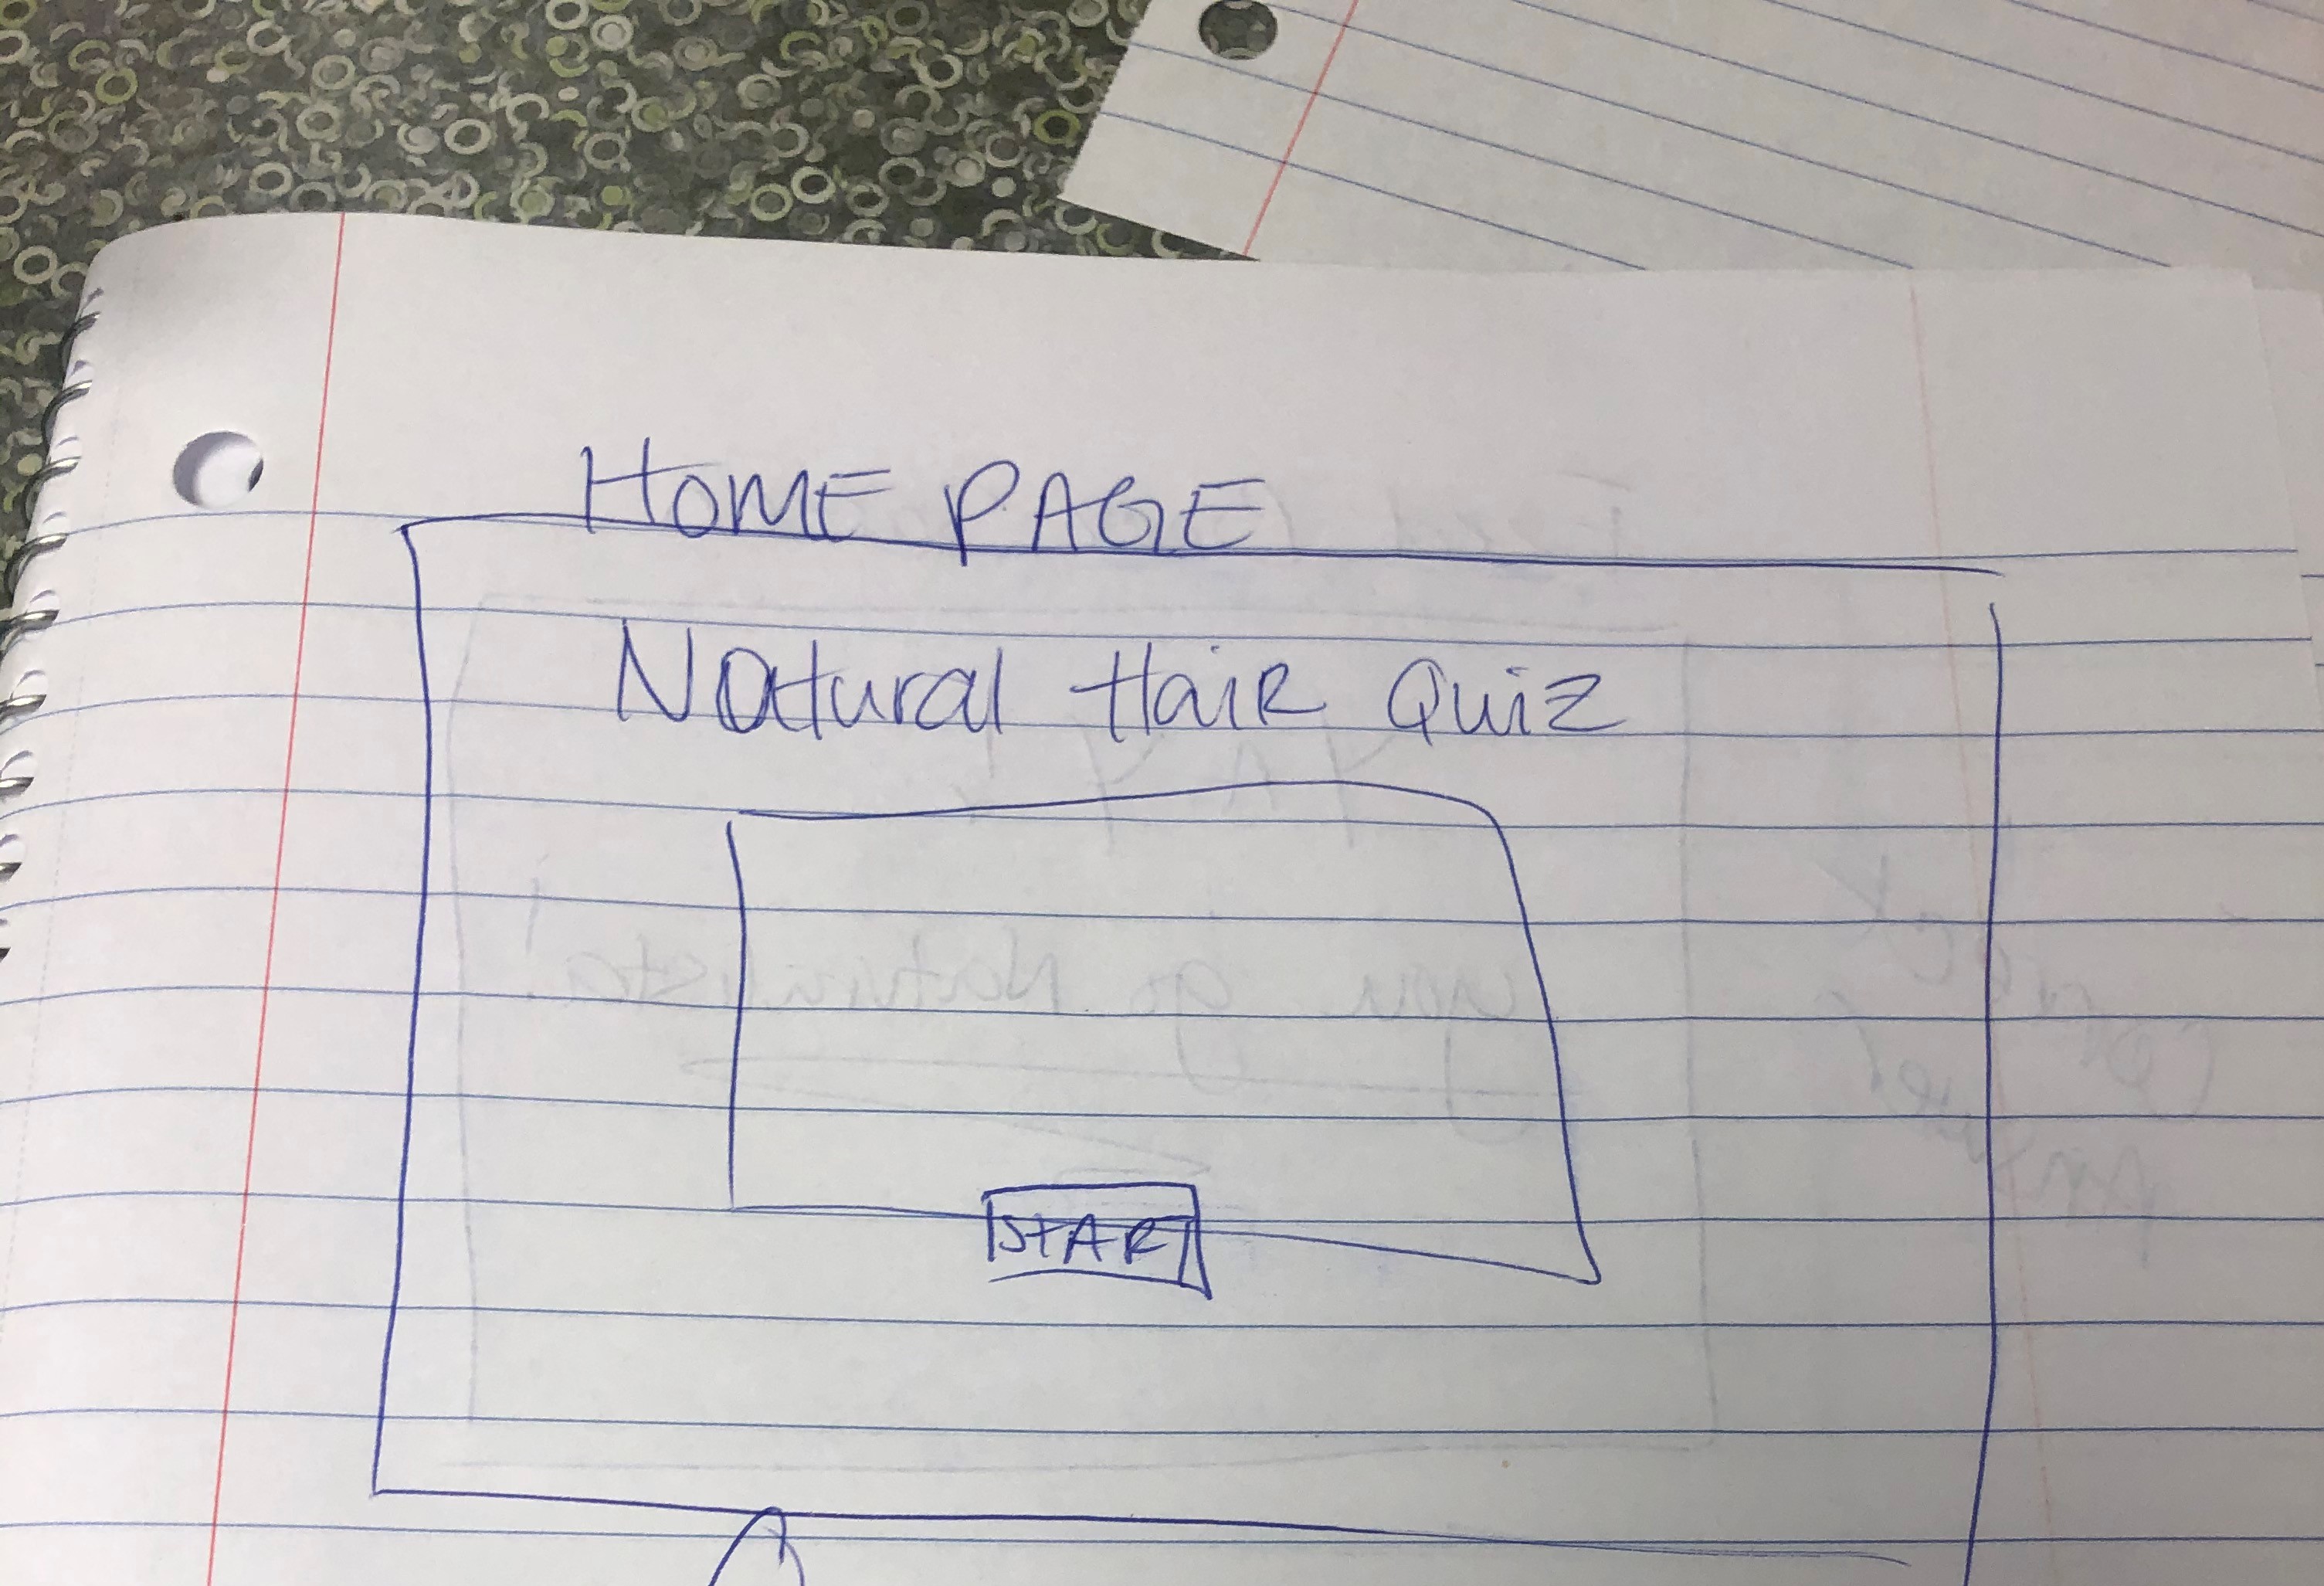 HOME PAGE
Natural Hair Quiz
START